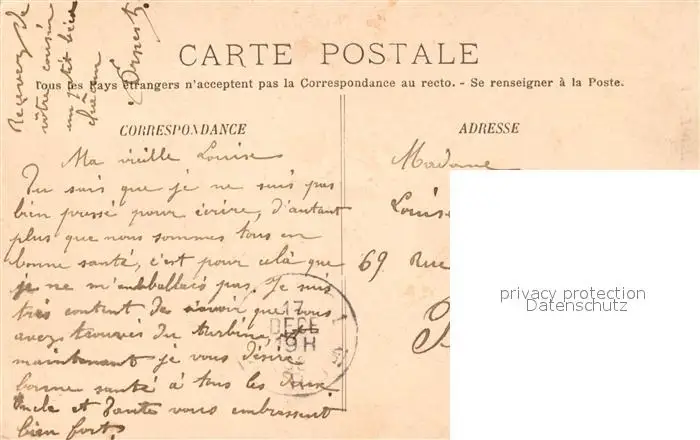 CARTE POSTALE
Tous les pays étrangers n'acceptent pas la Correspondance au recto. - Se renseigner à la Poste.
CORRESPONDANCE
Ma vieille Louise
Tu sais que je ne suis pas
bien pressé pour écrire, d'autant
plus que nous sommes tous en
bonne santé, c'est pour celà que
je ne m'emballais pas. Je suis
très content de savoir que vous
avez trouvés du turbin,
maintenant je vous désire
bonne santé à tous les deux
Oncle et Tante vous embrassent
bien fort.
Recevez de
vôtre cousin
un petit bien
Ernest
ADRESSE
Madame
Louise
69 Rue
17
DECE
19 H
privacy protection
Datenschutz